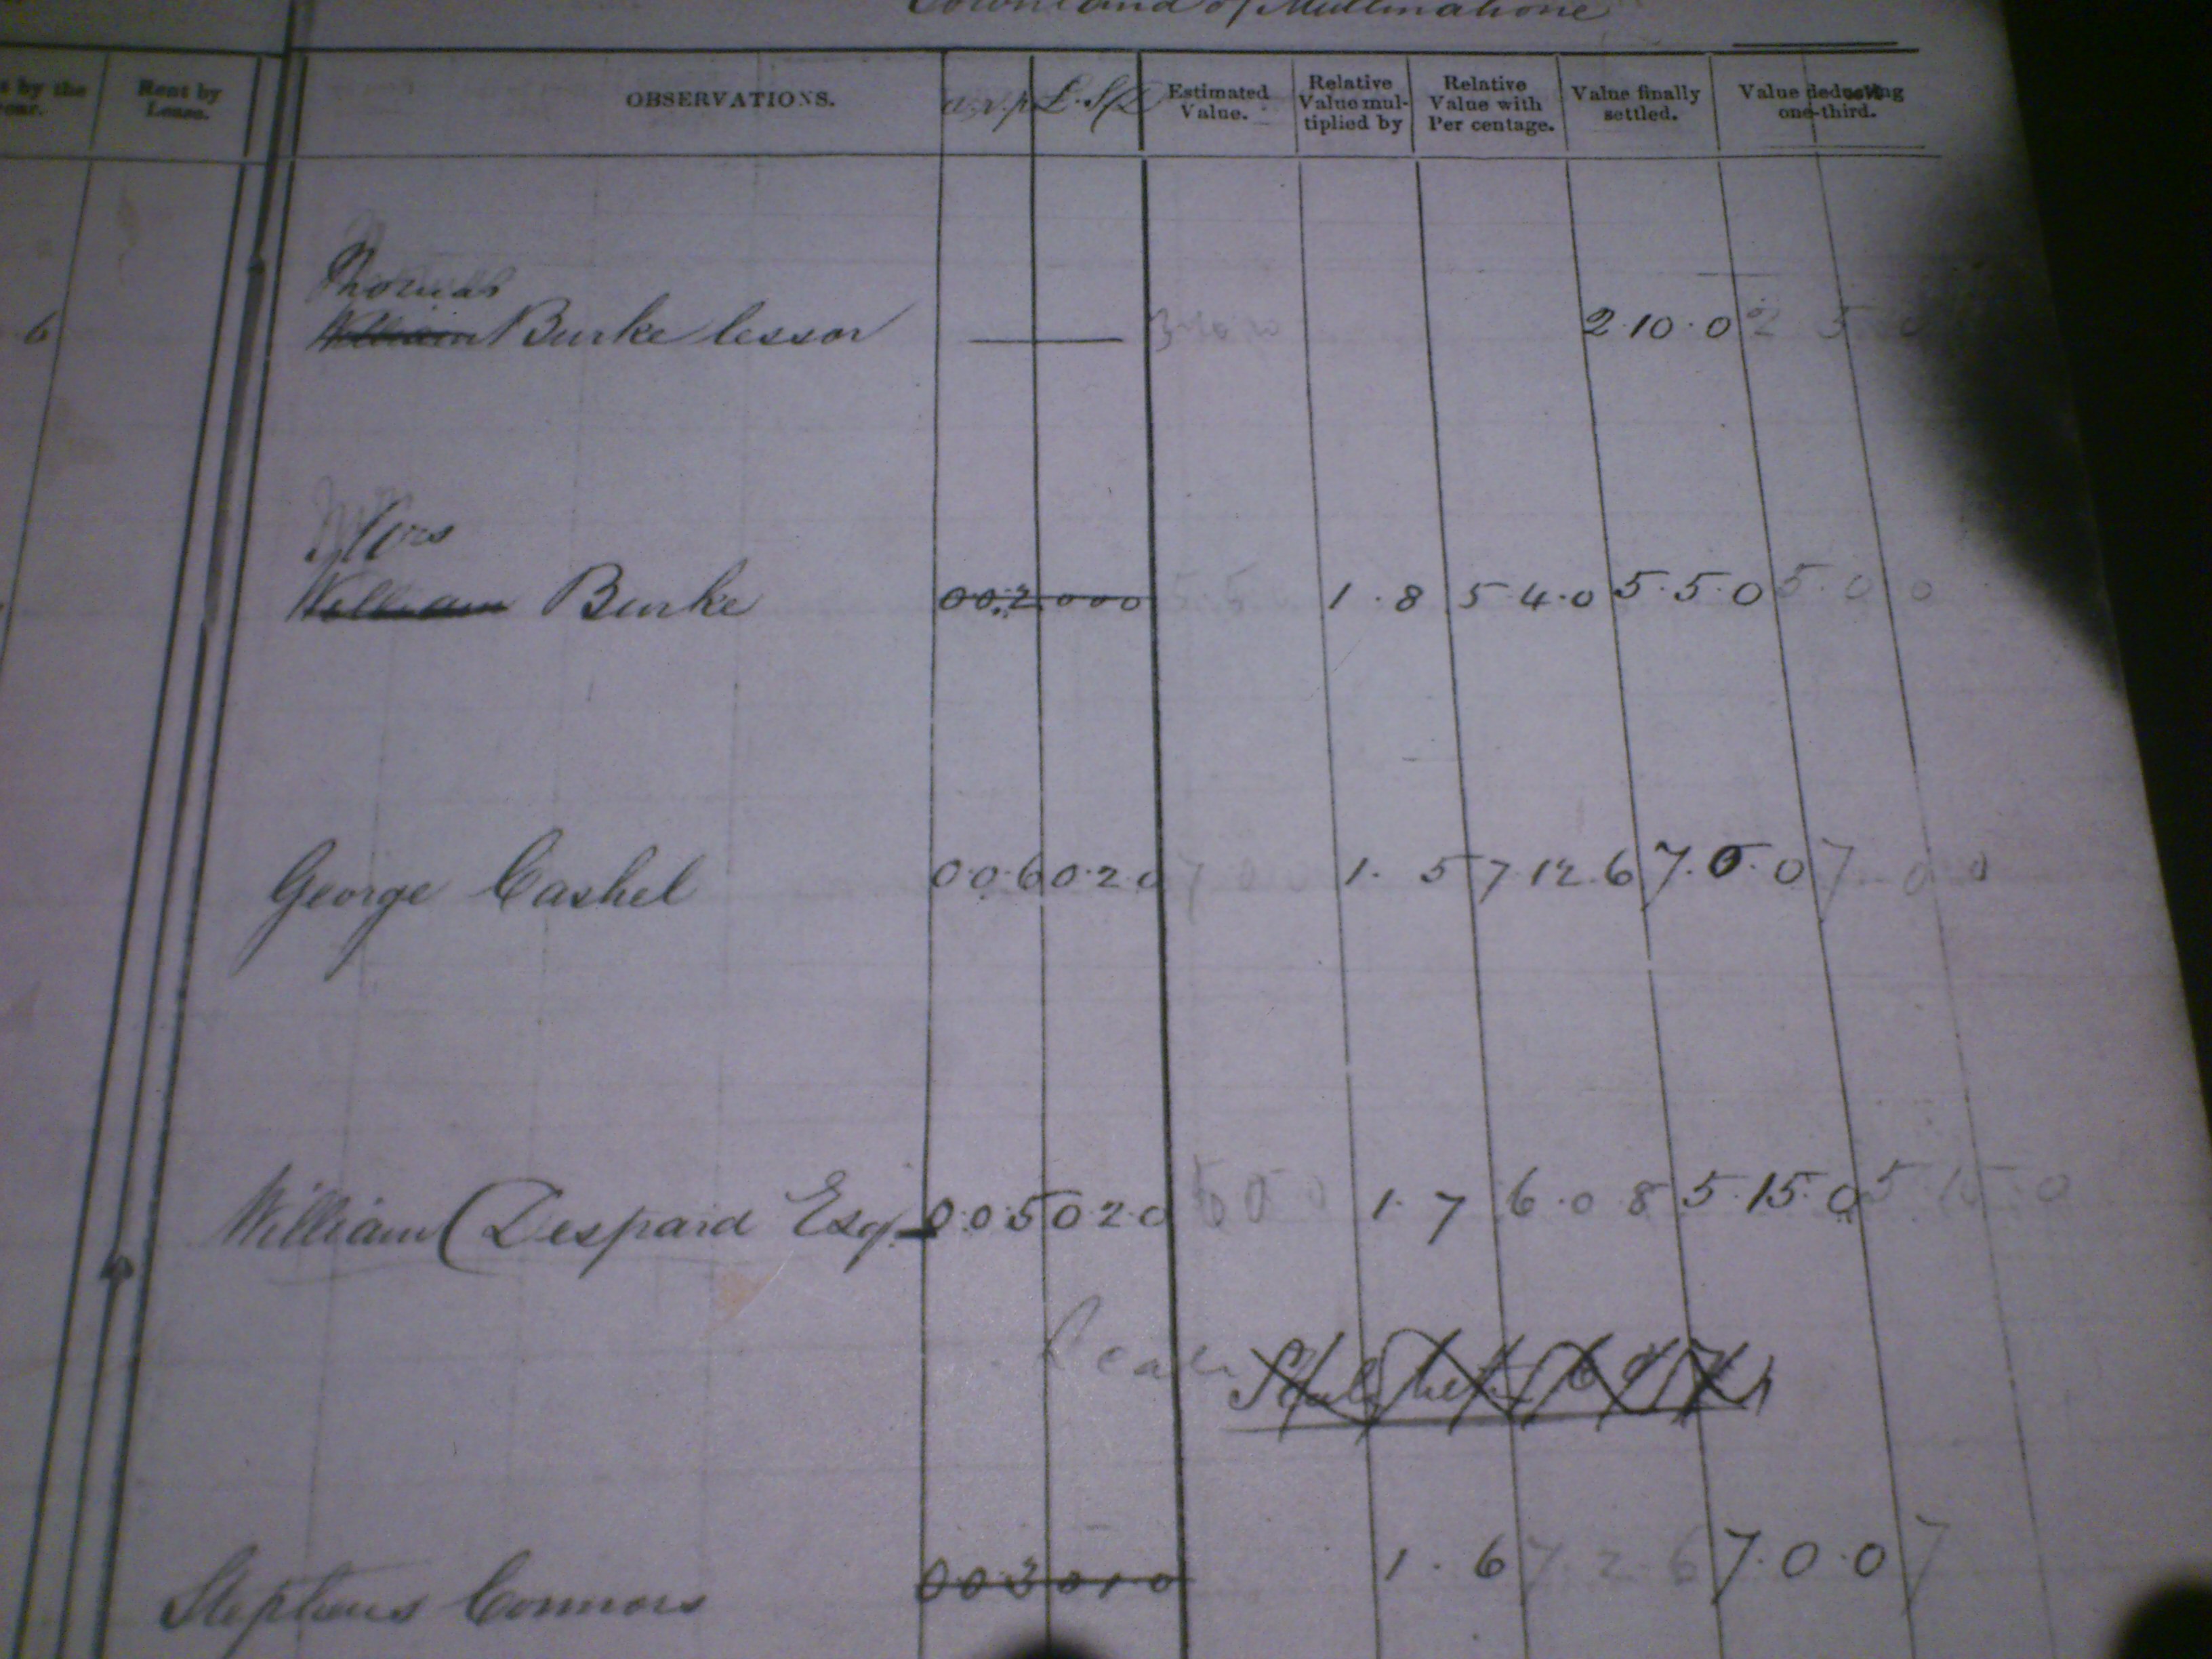 Townland of Mullinahone
t by the
ear.
Rent by
Lease.
OBSERVATIONS.
a. r. p. £. S. D
Estimated
Value.
Relative
Value mul-
tiplied by
Relative
Value with
Per centage.
Value finally
settled.
Value deducting
one-third.
Thomas
6 William Burke lessor 2.10.0 2 5 0
Mrs
William Burke 0 0.2 0 0 0 5 5 1.8 5 4.0 5.5.0 5.0 0
George Cashel 0.0.6 0.2.0 7 0 0 1. 5 7.12.6 7.0.0 7 0 0
William Despard Esq. 0.0.5 0.2.0 6 0 0 1. 7 6.0 8 5.15.0 5.15.0
Stephens Connors 0 0 3 0 1.0 1.6 7.2.6 7.0.0 7